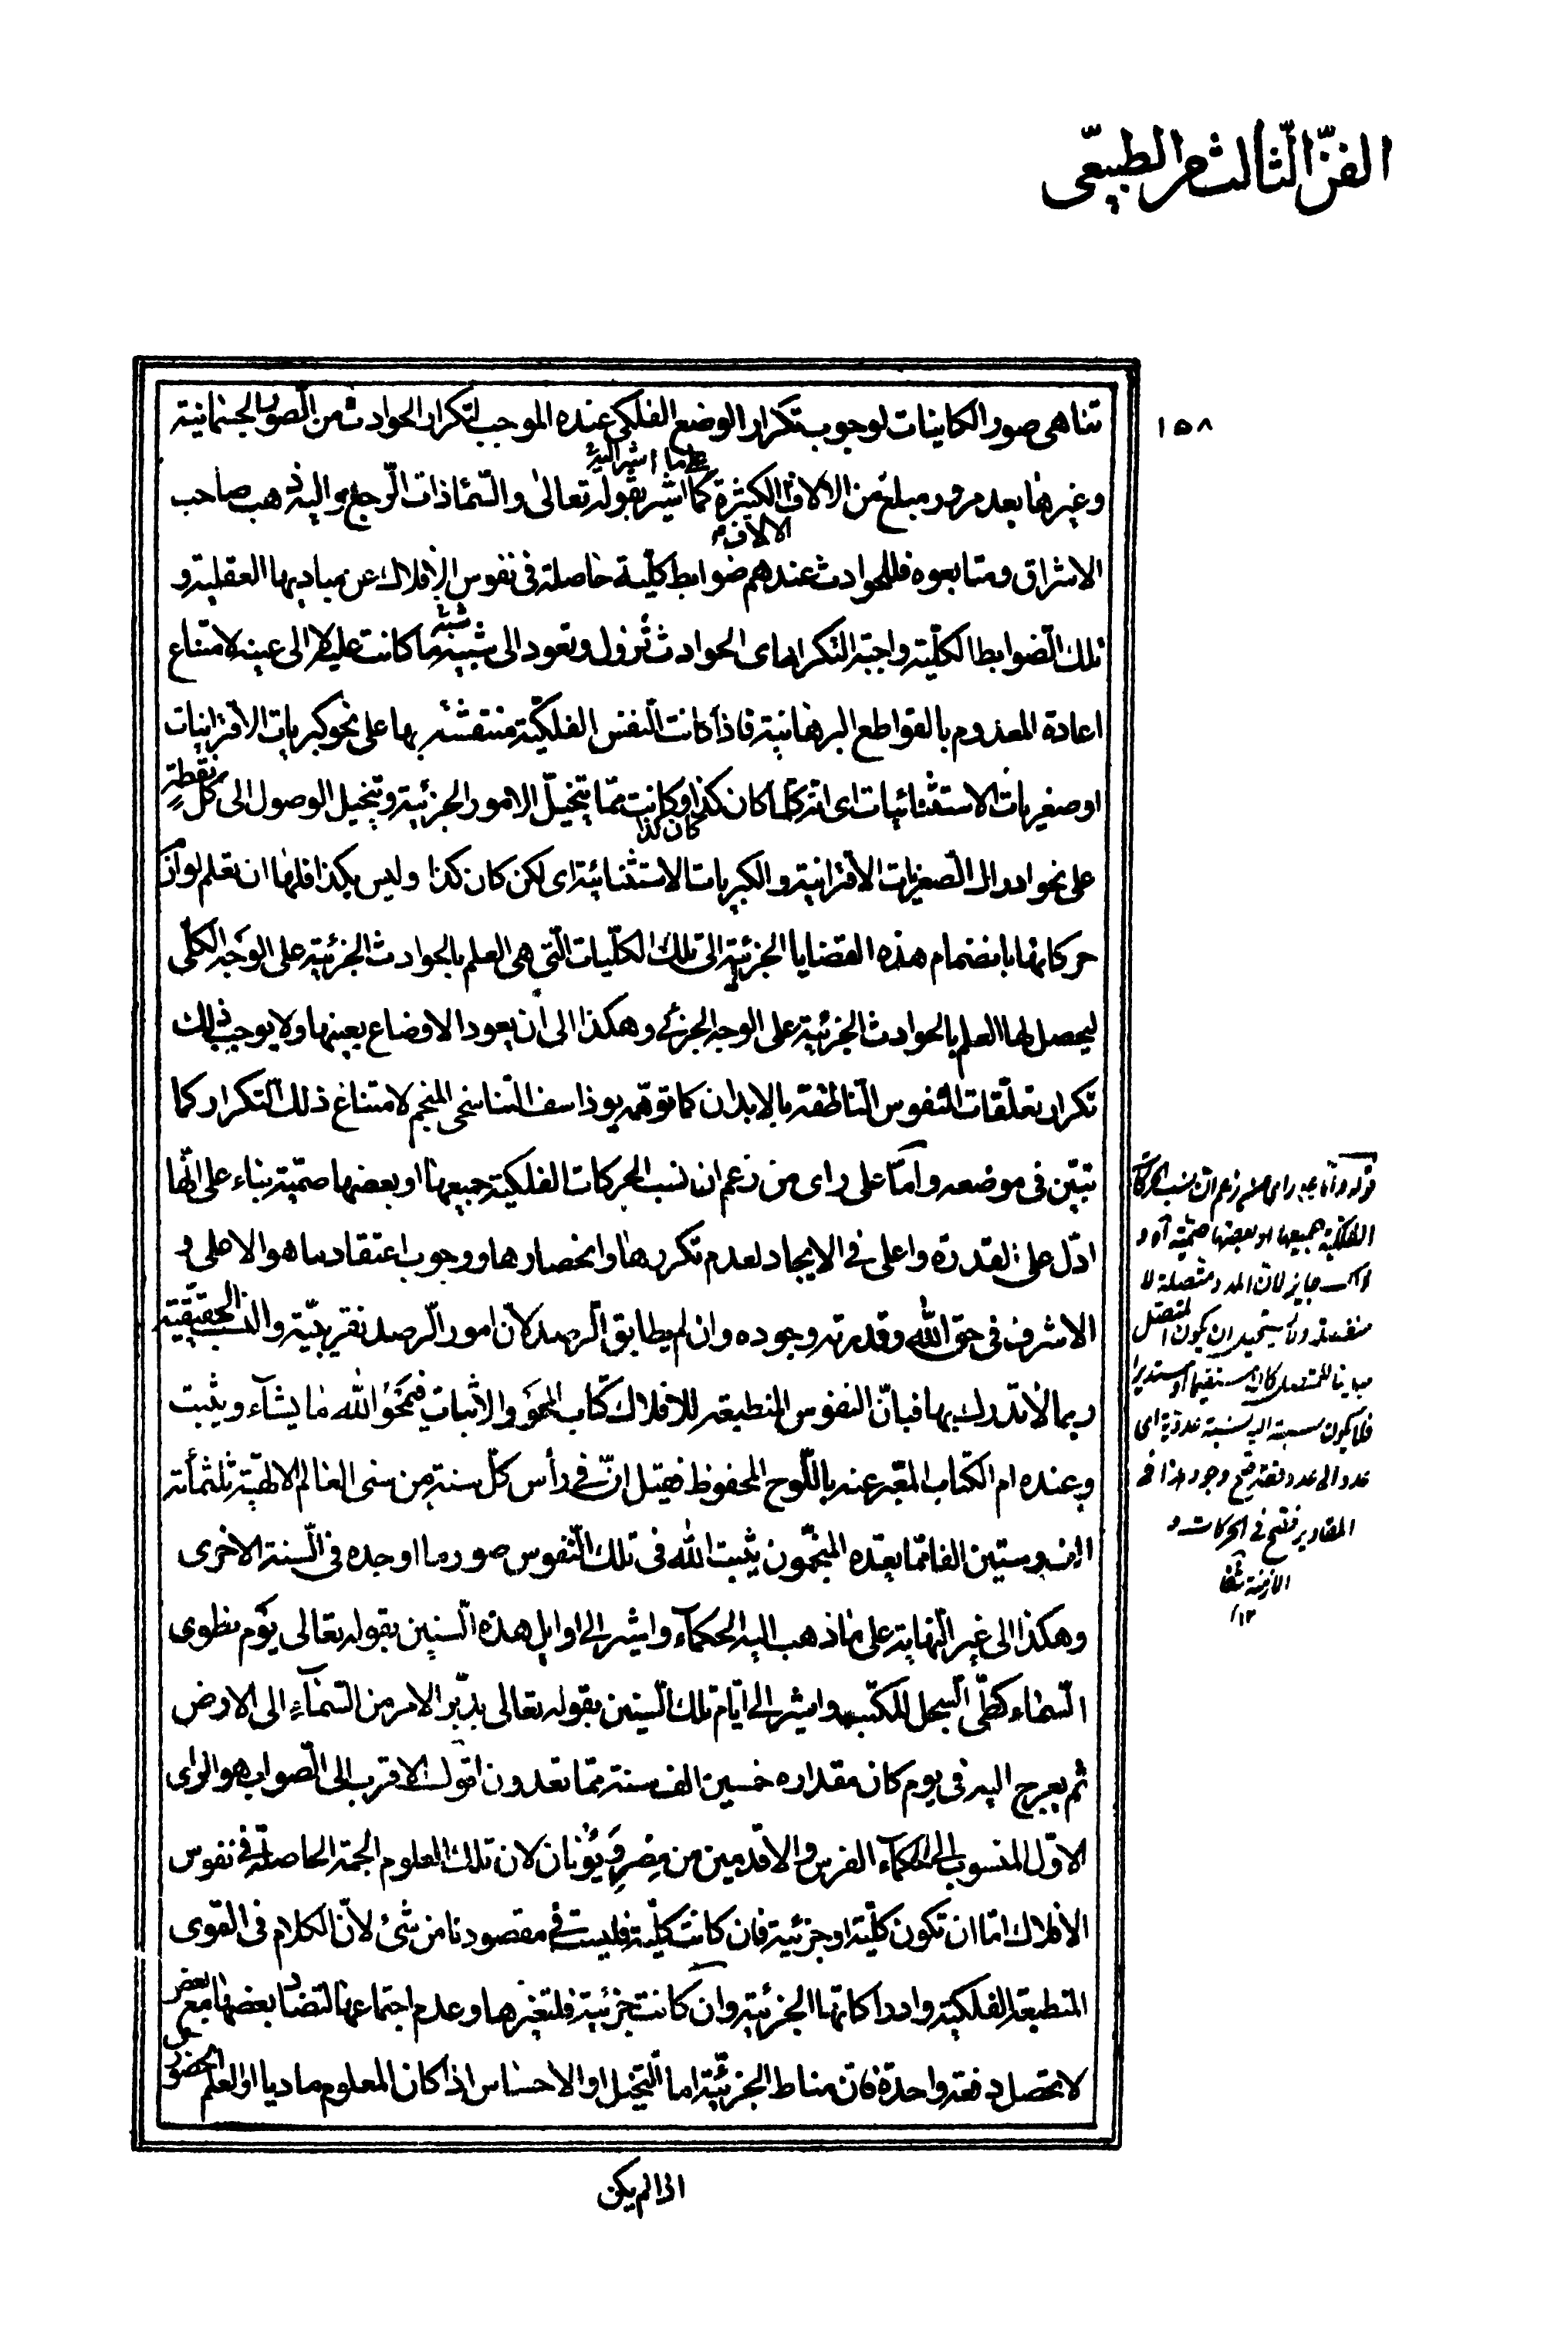 الفنّ الثّالث من الطبيعى
١٥٨
تناهى صور الكاينات لوجوب تكرار الوضع الفلكى عنده الموجب لتكرار الحوادث من الصّور الجسمانية
على ما اشير اليه
وغيرها بعد مرور مبلغ من الالاف الكثيرة كما اشير بقوله تعالى والسّماء ذات الرّجع واليه ذهب صاحب
الالاف
الاشراق ومتابعوه فللحوادث عندهم ضوابط كلّية حاصلة فى نفوس الافلاك عن مباديها العقلية و
تلك الضّوابط الكلّية واجبة التكرار اى الحوادث تزول وتعود الى شبيه ما كانت عليه لا الى عينه لامتناع
شبه
اعادة المعدوم بالقواطع البرهانية فاذا كانت النّفس الفلكيّة منتقشة بها على نحو كبريات الاقترانيات
او صغريات الاستثنائيات اى انه كلما كان كذا وكانت ممّا يتخيّل الامور الجزئية ويتخيل الوصول الى كلّ نقطة
كان كذا
على نحو ادراك الصّغريات الاقترانية والكبريات الاستثنائية اى لكن كان كذا وليس بكذا فلها ان تعلم لوازم
حركاتها بانضمام هذه القضايا الجزئية الى تلك الكلّيات الّتى هى العلم بالحوادث الجزئية على الوجه الكلّى
ليحصل لها العلم بالحوادث الجزئية على الوجه الجزئى وهكذا الى ان يعود الاوضاع بعينها ولا يوجب ذلك
تكرار تعلّقات النّفوس النّاطقة بالابدان كما توهّمه يوذاسف التناسخى المنجم لامتناع ذلك التكرار كما
تبيّن فى موضعه وامّا على راى من زعم ان نسب الحركات الفلكية جميعها او بعضها صمّية بناء على انّها
ادلّ على القدرة واعلى فى الايجاد لعدم تكررها وانحصارها ووجوب اعتقاد ما هو الاعلى و
الاشرف فى حق اللّه وقدرته وجوده وان لم يطابق الرّصد لانّ امور الرّصد تقريبيّة والنسب الحقيقيّة
ربما لا تدرك بها فبانّ النفوس المنطبعة للافلاك كتاب المحو والاثبات فيمحو اللّه ما يشاء ويثبت
وعنده ام الكتاب المعبّر عنه باللّوح المحفوظ فقيل انّ فى رأس كلّ سنة من سنى العالم الالهيّة ثلثمأة
الف وستين الفا ممّا يعدّه المنجّمون يثبت اللّه فى تلك النّفوس صور ما اوجده فى السّنة الاخرى
وهكذا الى غير النّهاية على ما ذهب اليه الحكماء واشير الى اوايل هذه السّنين بقوله تعالى يوم نطوى
السّماء كطىّ السّجل للكتب واشير الى ايّام تلك السّنين بقوله تعالى يدبّر الامر من السّماء الى الارض
ثم يعرج اليه فى يوم كان مقداره خمسين الف سنة ممّا تعدون اقول الاقرب الى الصّواب هو الراى
الاوّل المنسوب الى حكماء الفرس والاقدمين من مصر ويونان لان تلك العلوم الجمّة الحاصلة فى نفوس
الافلاك امّا ان تكون كلّية او جزئية فان كانت كلّية فليست فى مقصودنا من شئ لانّ الكلام فى القوى
المنطبعة الفلكية وادراكاتها الجزئية وان كانت جزئية فلتغيّرها وعدم اجتماعها لتضادّ بعضها مع بعض
لا تحصل دفعة واحدة فان مناط الجزئيّة اما التّخيل او الاحساس اذا كان المعلوم ماديا او العلم الحضورى
قوله وامّا على راى من زعم ان نسب الحركات
الفلكية جميعها او بعضها صمّية آه و
ذلك جايز لانّ المدد متصلة لا
منفصلة ولا يستحيل ان يكون المتصل
مباينا للمتصل كان مستقيما او مستديرا
فلا يكون نسبته اليه نسبة عددية اى
عدد الى عدد فقد صح وجود هذا فى
المقادير فتصح فى الحركات و
الازمنة
١٢
اذا لم يكن